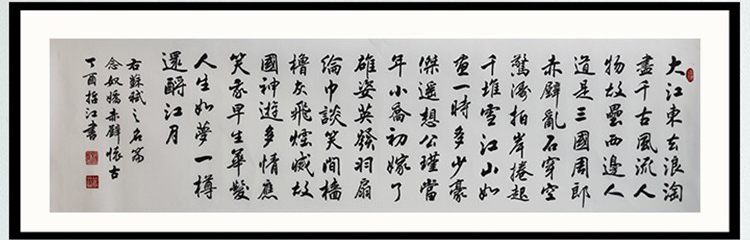 大江東去浪淘
盡千古風流人
物故壘西邊人
道是三國周郎
赤壁亂石穿空
驚濤拍岸捲起
千堆雪江山如
畫一時多少豪
傑遥想公瑾當
年小喬初嫁了
雄姿英發羽扇
綸巾談笑間檣
櫓灰飛煙滅故
國神遊多情應
笑我早生華髮
人生如夢一樽
還酹江月
右蘇軾之名篇
念奴嬌赤壁懷古
丁酉江書